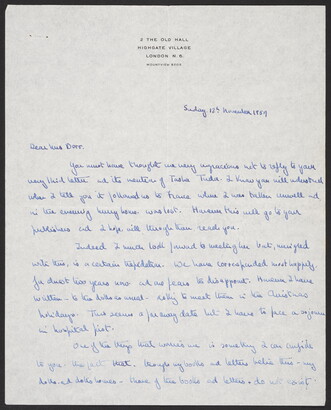 2 THE OLD HALL
HIGHGATE VILLAGE
LONDON N. 6.
MOUNTVIEW
Sunday, 15th November 1959
Dear Miss Door.
You must have thought me very ungracious not to reply to your
very kind letter and its mention of Tasha Tudor. I know you will understand
when I tell you it followed me to France where I was taken unwell and
in the ensuing hurry home was lost. However this will go to your
publishers and I hope will through them reach you.
Indeed I much look forward to meeting her but, mingled
with this, is a certain trepidation. We have corresponded most happily
for almost two years now and one fears to disappoint. However I have
written - to the dolls as usual - asking to meet them in the Christmas
holidays. This seems a far away date but I have to face a sojourn
in hospital first.
One of the things that worries me is something I can confide
to you - the fact that, though my books and letters belie this - my
dolls and dolls houses - those of the books and letters - do not exist.